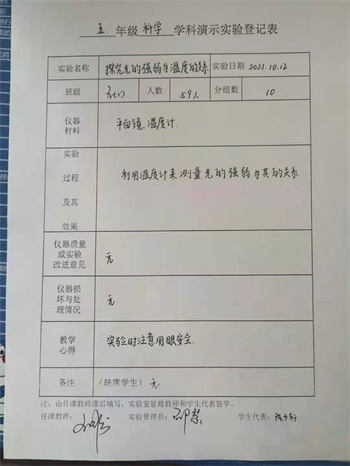 五 年级 科学 学科演示实验登记表
实验名称 探究光的强弱与温度的关系 实验日期 2021.10.12
班级 人数 59人 分组数 10
仪器材料 平面镜、温度计.
实验过程及其效果 利用温度计来测量光的强弱与其的关系
仪器质量或实验改进意见 无
仪器损坏与处理情况 无
教学心得 实验时注意用眼安全.
备注 (缺席学生) 无
注：由任课教师课后填写、实验室管理教师和学生代表签字。
任课教师： 实验管理员： 学生代表：